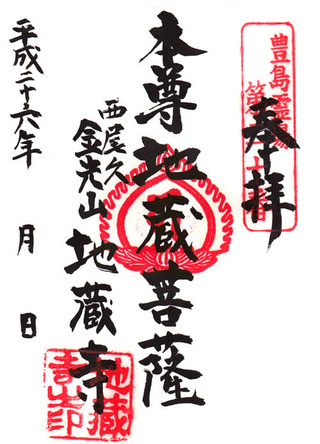 奉拝
豊島霊場
本尊地蔵菩薩
西尾久
金光山地蔵寺
平成二十六年 月 日
地蔵寺印